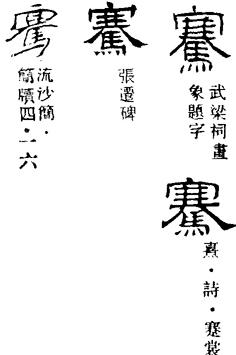 騫
武梁祠畫
象題字
騫
熹・詩・褰裳
騫
張遷碑
騫
流沙簡・
簡牘四・一六